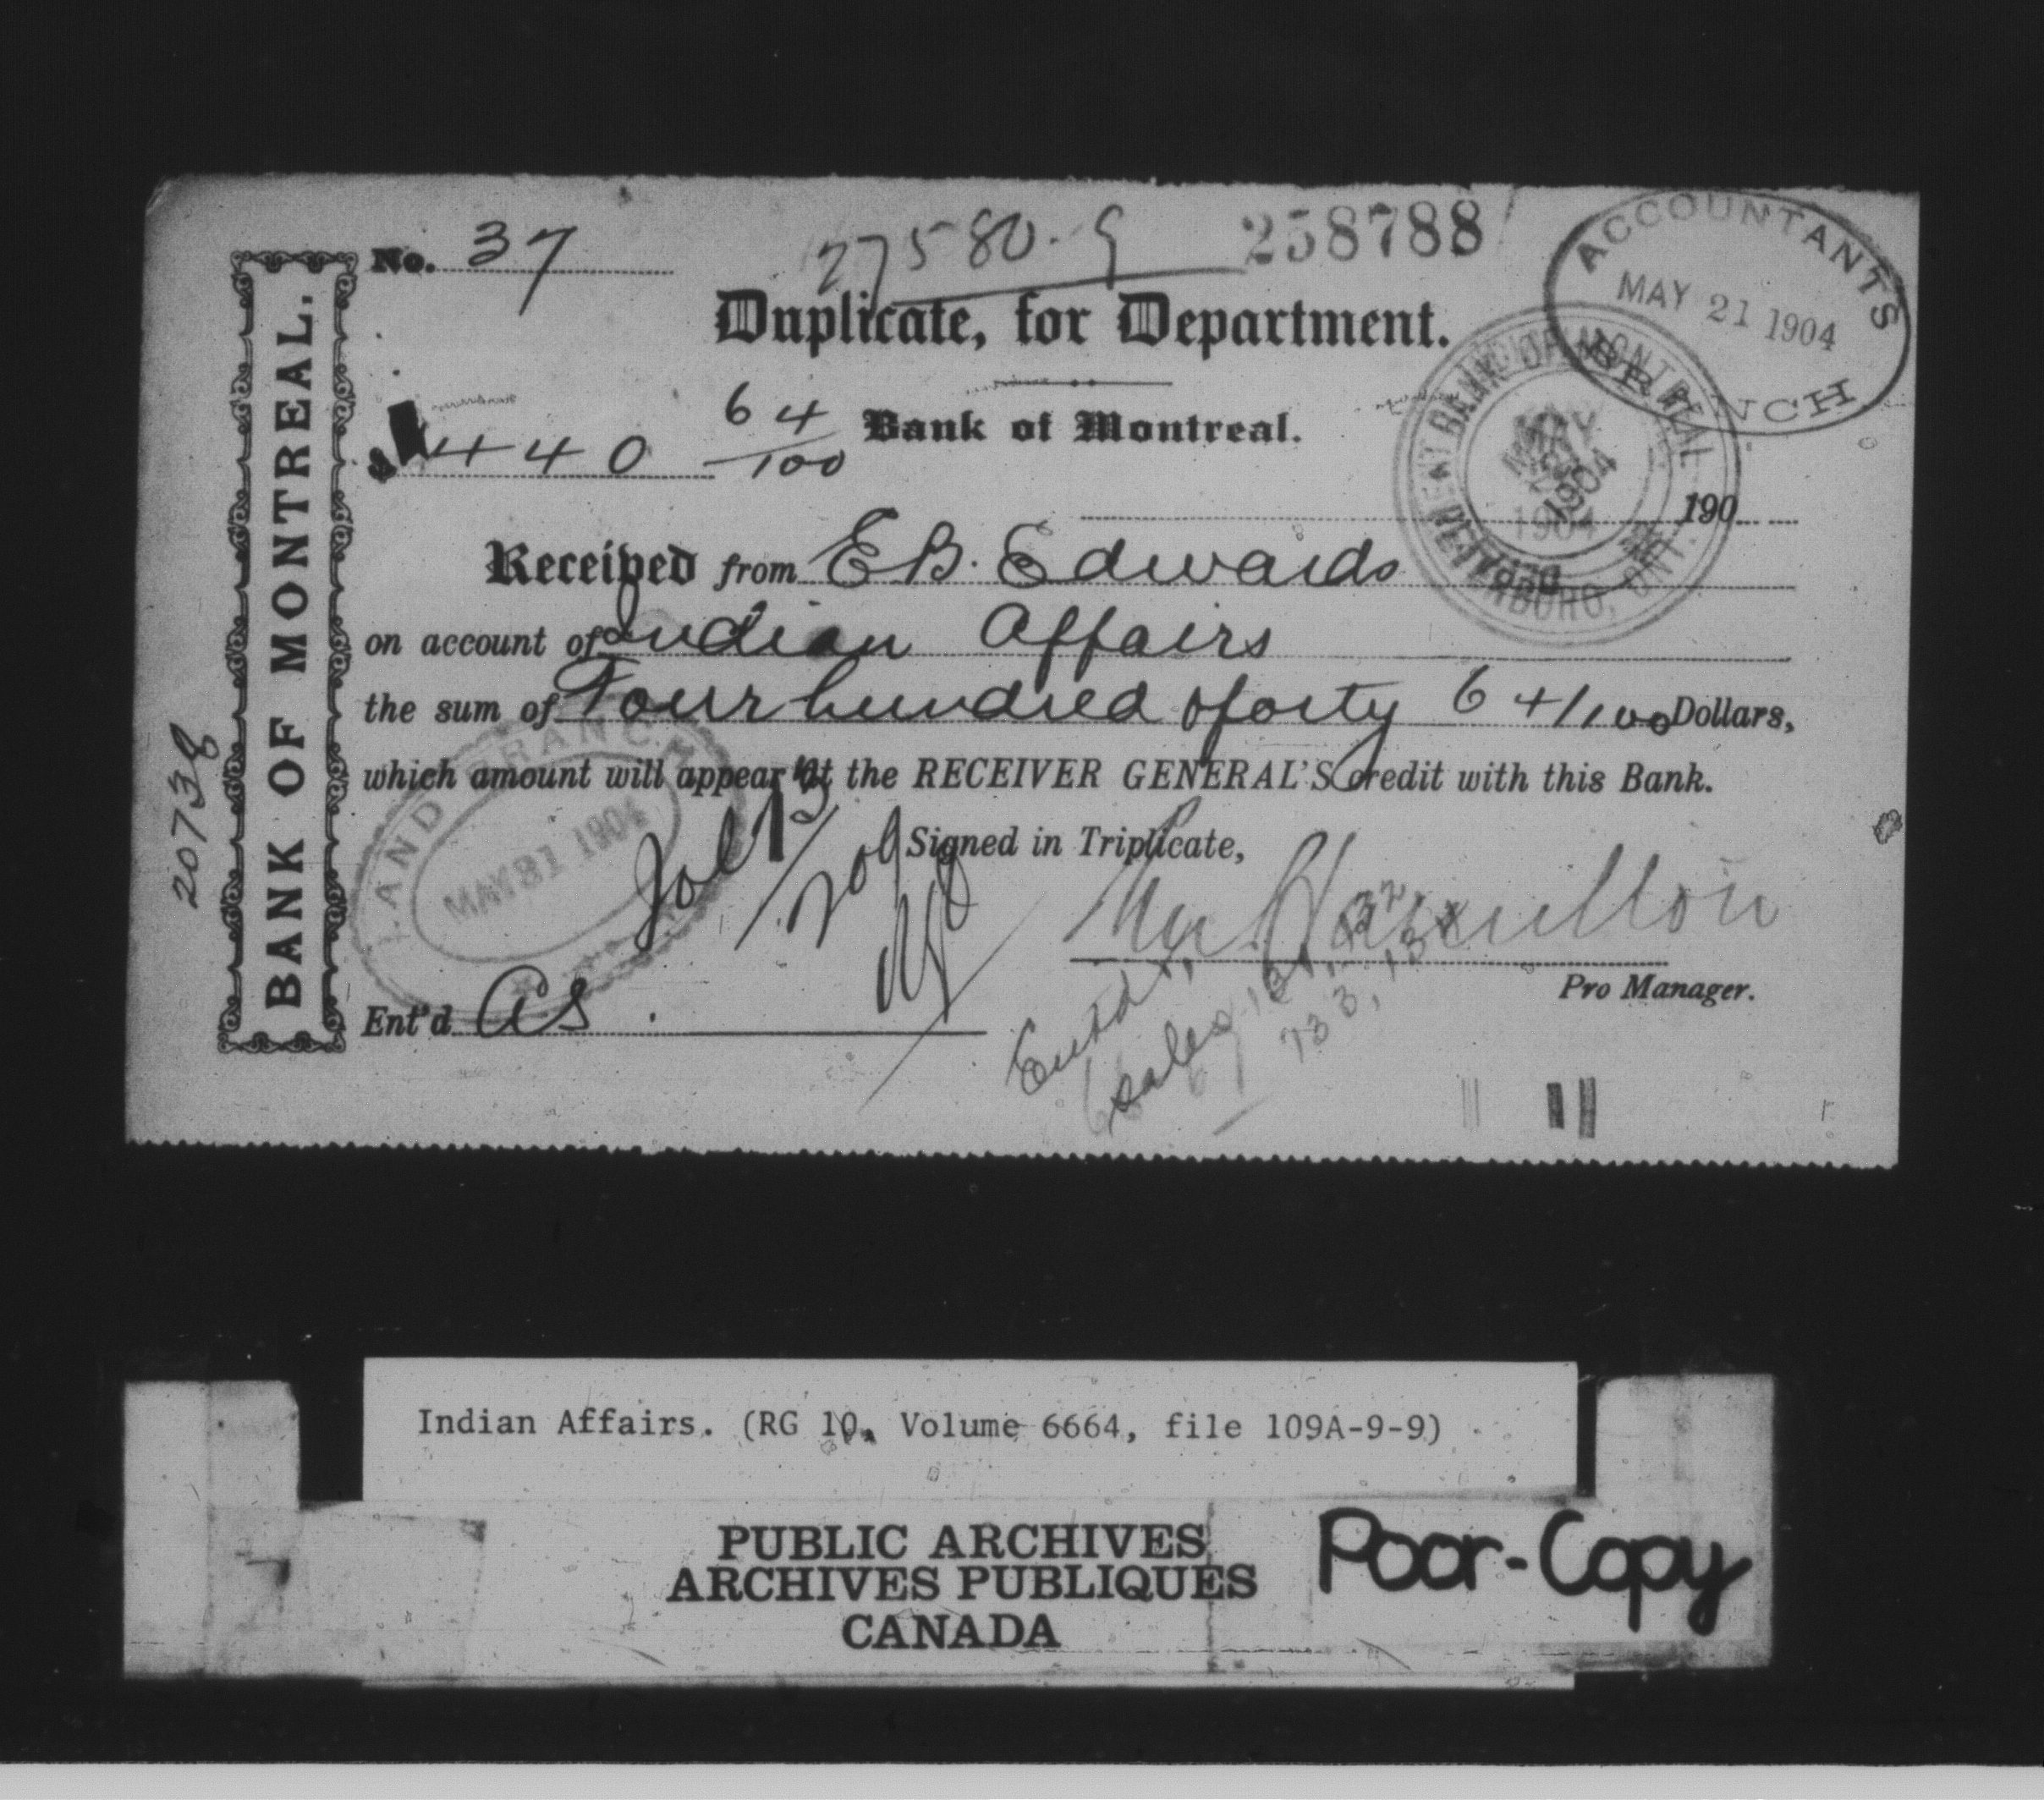 No. 37
27580-9
258788
ACCOUNTANTS
MAY 21 1904
BRANCH
Duplicate, for Department.
$ 440 64/100
Bank of Montreal.
BANK OF MONTREAL
MAY
1904
PETERBORO, ONT.
190
Received from E.B. Edwards
on account of Indian Affairs
the sum of Four hundred & forty 64/100 Dollars,
which amount will appear at the RECEIVER GENERAL'S credit with this Bank.
BANK OF MONTREAL.
20738
LAND BRANCH
MAY 31 1904
Signed in Triplicate,
Hamilton
Pro Manager.
Ent'd
Entd
sales 131, 132
133, 134
Indian Affairs. (RG 10, Volume 6664, file 109A-9-9)
PUBLIC ARCHIVES
ARCHIVES PUBLIQUES
CANADA
Poor-Copy